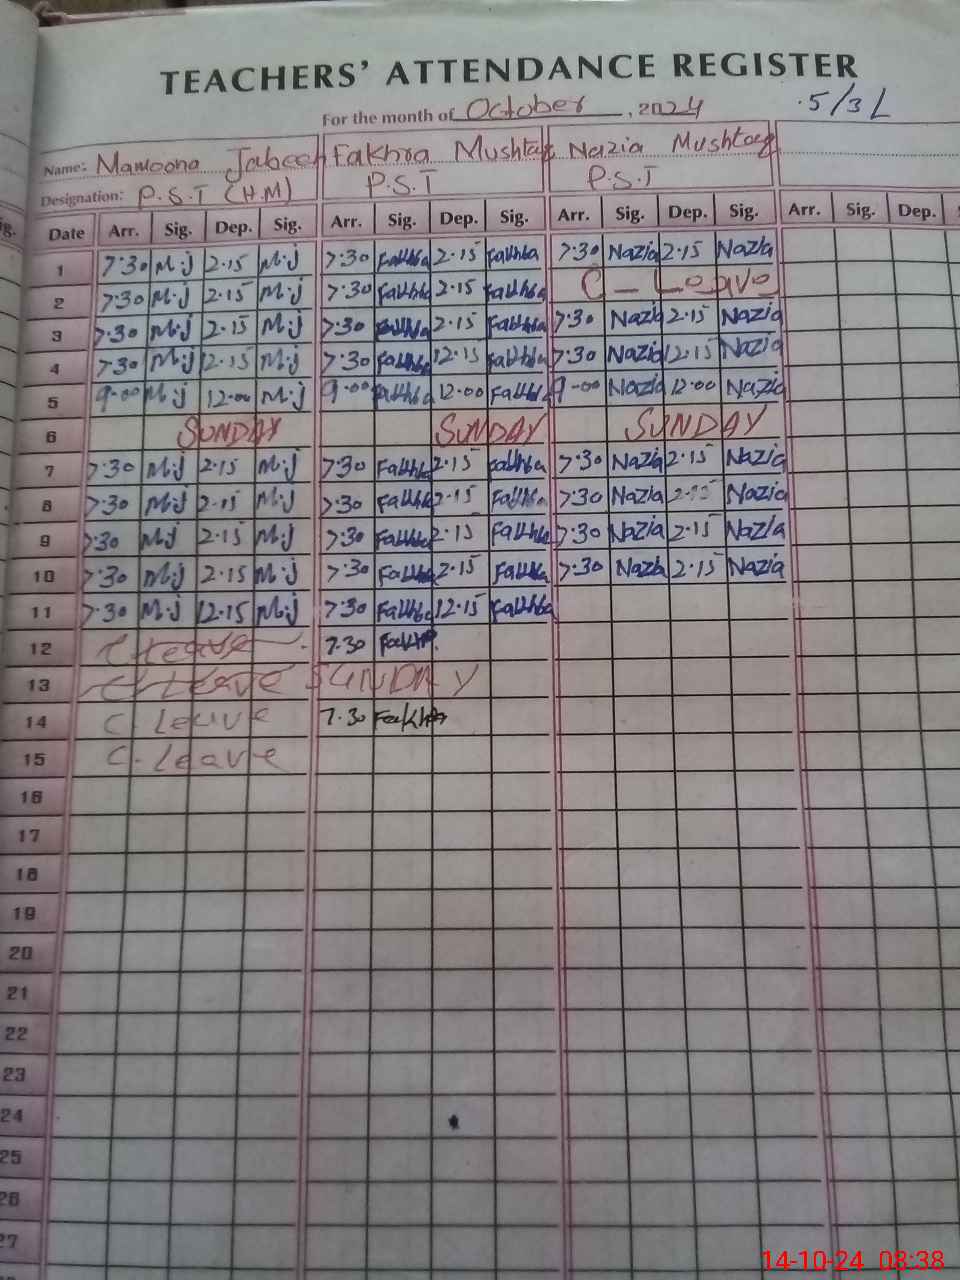 TEACHERS' ATTENDANCE REGISTER
For the month of October, 2024 .5/3L
Name: Mamoona Jabeen Fakhra Mushtaq Nazia Mushtaq
Designation: P.S.T (H.M) P.S.T P.S.T
Date Arr. Sig. Dep. Sig. Arr. Sig. Dep. Sig. Arr. Sig. Dep. Sig. Arr. Sig. Dep.
1 7:30 M.j 2.15 M.j 7:30 Fakhra 2.15 Fakhra 7:30 Nazia 2.15 Nazia
2 7:30 M.j 2.15 M.j 7:30 Fakhra 2.15 Fakhra C-Leave
3 7:30 M.j 2.15 M.j 7:30 Fakhra 2.15 Fakhra 7:30 Nazia 2.15 Nazia
4 7:30 M.j 12.15 M.j 7:30 Fakhra 12.15 Fakhra 7:30 Nazia 12.15 Nazia
5 9-00 M.j 12.00 M.j 9-00 Fakhra 12.00 Fakhra 9-00 Nazia 12.00 Nazia
6 SUNDAY SUNDAY SUNDAY
7 7:30 M.j 2.15 M.j 7:30 Fakhra 2.15 Fakhra 7:30 Nazia 2.15 Nazia
8 7:30 M.j 2.15 M.j 7:30 Fakhra 2.15 Fakhra 7:30 Nazia 2.15 Nazia
9 7:30 M.j 2.15 M.j 7:30 Fakhra 2.15 Fakhra 7:30 Nazia 2.15 Nazia
10 7:30 M.j 2.15 M.j 7:30 Fakhra 2.15 Fakhra 7:30 Nazia 2.15 Nazia
11 7:30 M.j 12.15 M.j 7:30 Fakhra 12.15 Fakhra
12 C leave 7.30 Fakhra
13 C leave SUNDAY
14 C. leave 7.30 Fakhra
15 C. leave
16
17
18
19
20
21
22
23
24
25
26
27
14-10-24 08:38